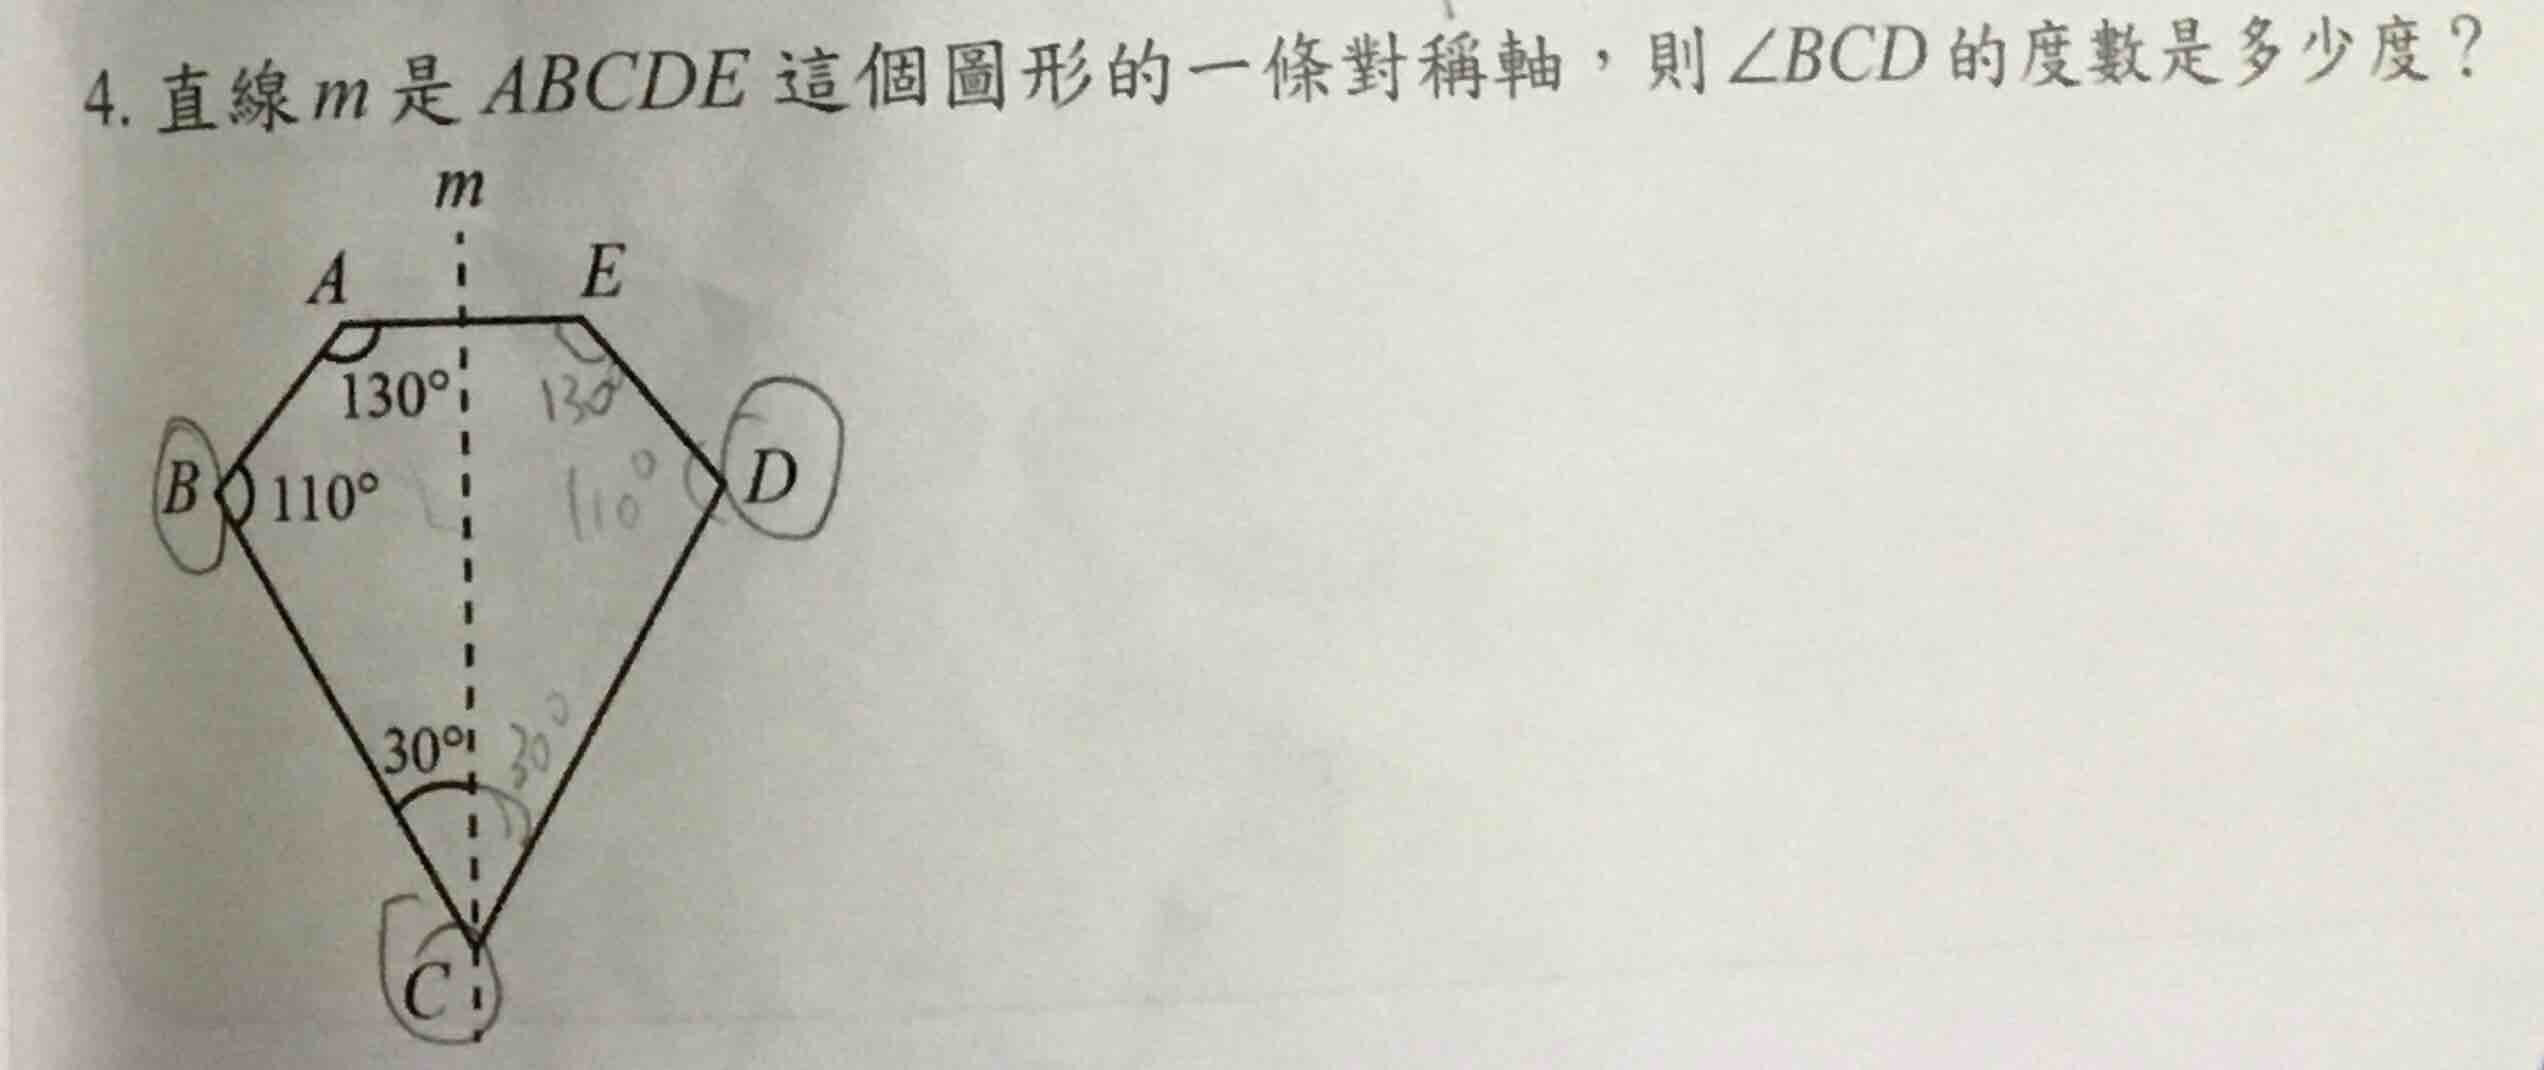 4. 直線 m 是 ABCDE 這個圖形的一條對稱軸，則∠BCD 的度數是多少度？
m
A E
130° 130°
B 110° 110° D
30° 30°
C